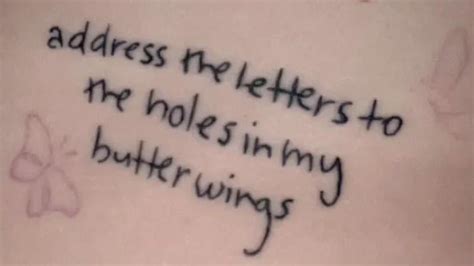 address the letters to
the holes in my
butterwings